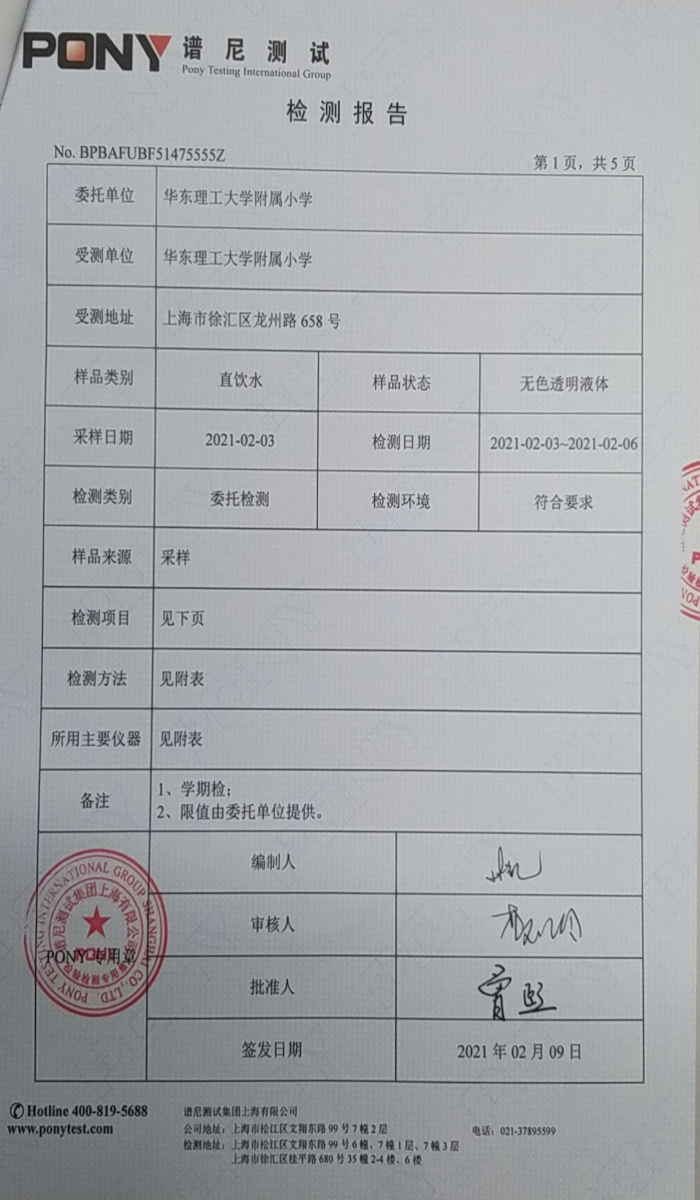 PONY 谱尼测试
Pony Testing International Group
检测报告
No. BPBAFUBF51475555Z
第1页，共5页
委托单位 华东理工大学附属小学
受测单位 华东理工大学附属小学
受测地址 上海市徐汇区龙州路 658 号
样品类别 直饮水 样品状态 无色透明液体
采样日期 2021-02-03 检测日期 2021-02-03~2021-02-06
检测类别 委托检测 检测环境 符合要求
样品来源 采样
检测项目 见下页
检测方法 见附表
所用主要仪器 见附表
备注 1、学期检;
2、限值由委托单位提供。
编制人
审核人
PONY 专用章
批准人
签发日期 2021 年 02 月 09 日
Hotline 400-819-5688
www.ponytest.com
谱尼测试集团上海有限公司
公司地址：上海市松江区文翔东路 99 号 7 幢 2 层
电话：021-37895599
检测地址：上海市松江区文翔东路 99 号 6 幢、7 幢 1 层、7 幢 3 层
上海市徐汇区桂平路 680 号 35 幢 2-4 楼、6 楼